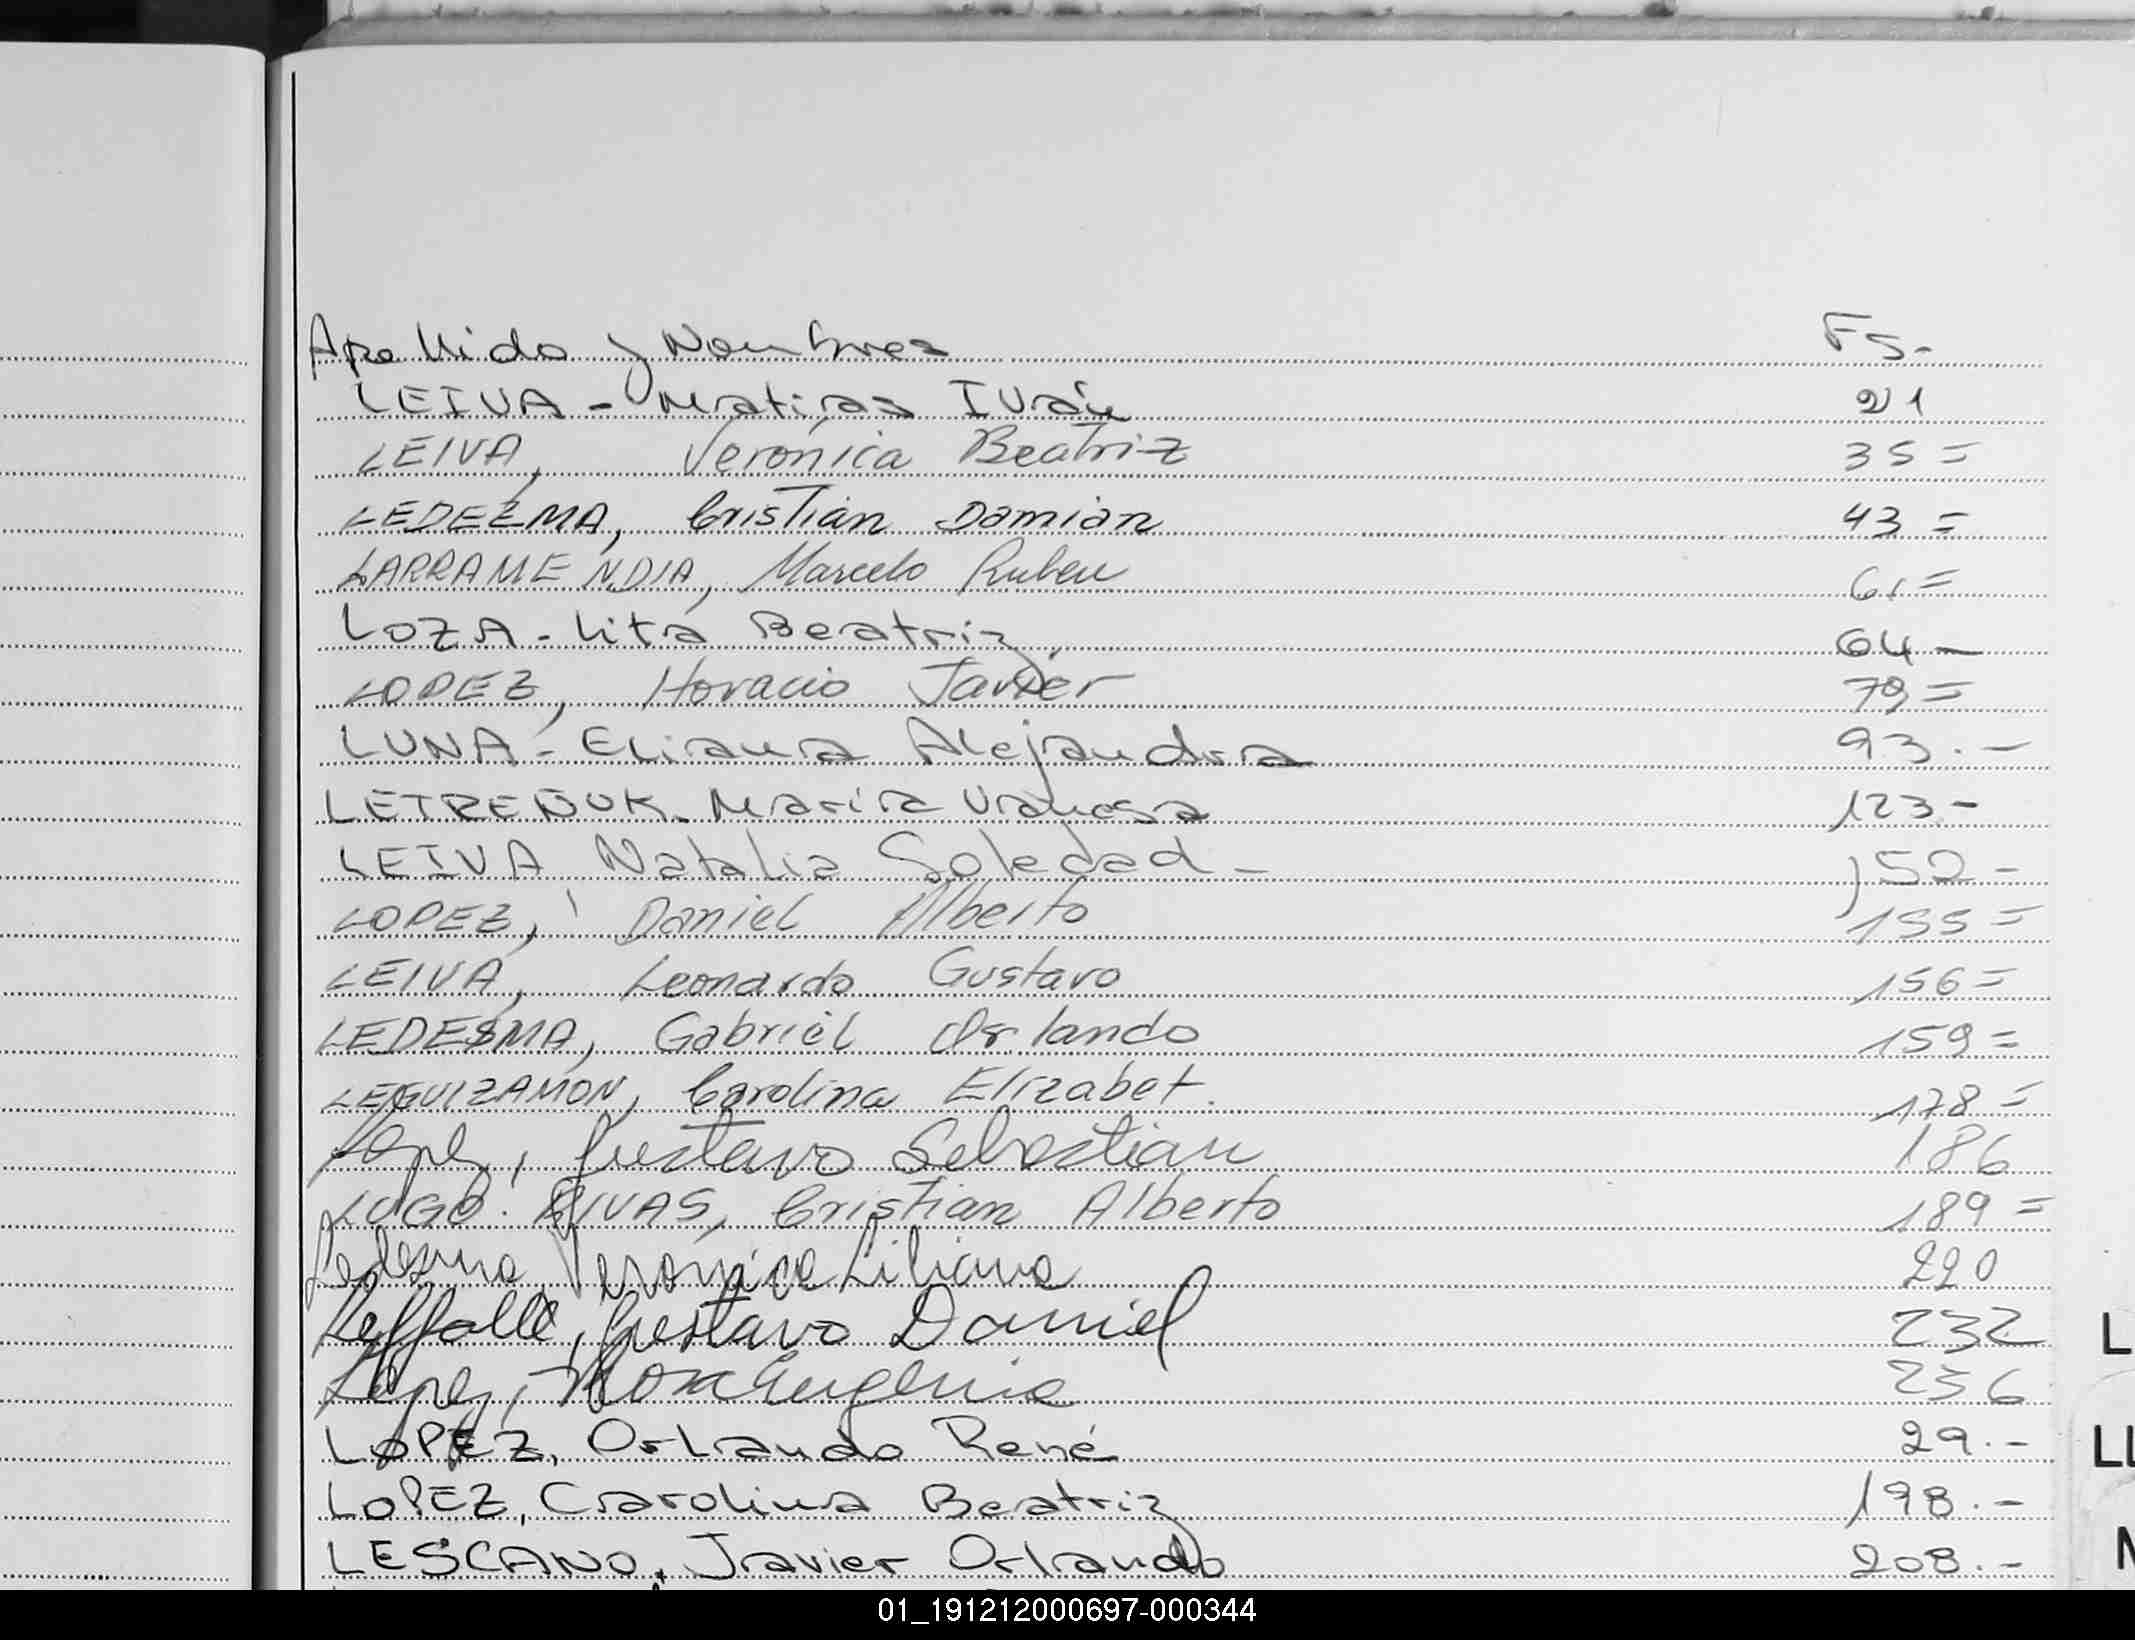 Apellido y Nombres Fs-
LEIVA - Matias Iván 21
LEIVA, Verónica Beatriz 35=
LEDEZMA, Cristian Damian 43=
LARRAMENDIA, Marcelo Ruben 61=
LOZA - Lita Beatriz 64-
LOPEZ, Horacio Javier 79=
LUNA - Eliana Alejandra 93.-
LETREÑUK. María Vanesa 123-
LEIVA Natalia Soledad - 152-
LOPEZ, Daniel Alberto 155=
LEIVA, Leonardo Gustavo 156=
LEDESMA, Gabriel Orlando 159=
LEGUIZAMON, Carolina Elizabet. 178=
Lopez, Gustavo Sebastian 186
LUGO RIVAS, Cristian Alberto 189=
Ledesma Verónica Liliana 220
Gustavo Daniel 232
Lopez, Eugenia 236
LOPEZ, Orlando René 29.-
LOPEZ, Carolina Beatriz 198.-
LESCANO, Javier Orlando 208.-
L
LL
01_191212000697-000344